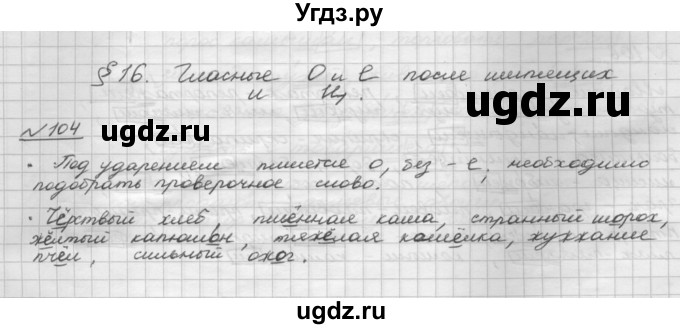 Угдз.ру
§ 16. Гласные О и Е после шипящих
и Ц.
ugdz.ru
ugdz.ru
ugdz.ru
№ 104
· Под ударением пишется о, без - е, необходимо
подобрать проверочное слово.
· Чёрствый хлеб, пшённая каша, странный шорох,
жёлтый капюшон, тяжёлая кошёлка, жужжание
пчёл, сильный ожог.
ugdz.ru
ugdz.ru
ugdz.ru